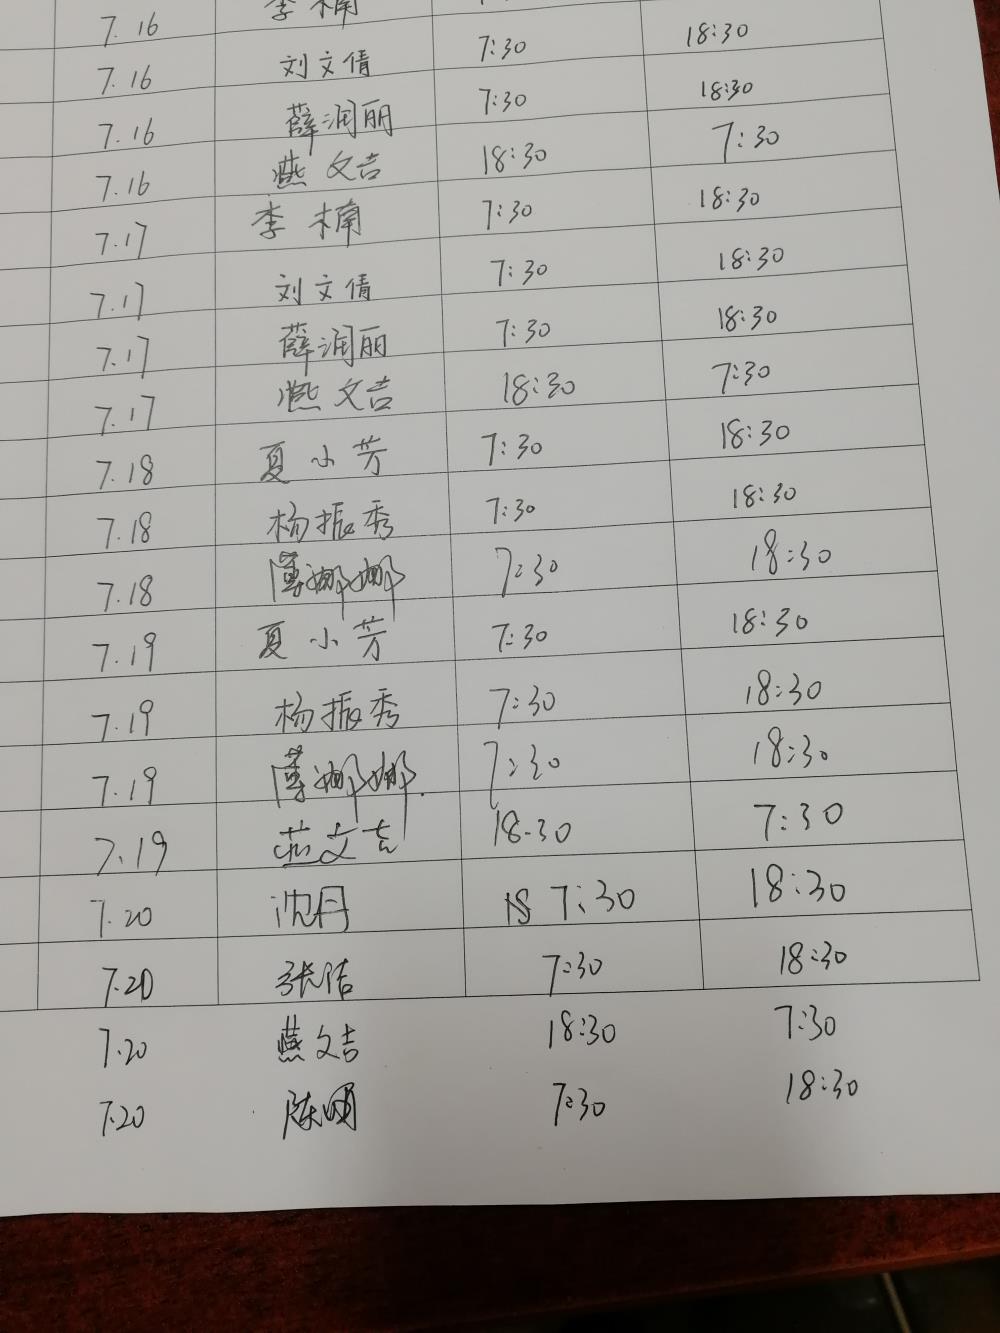 7.16 李楠
7.16 刘文倩 7:30 18:30
7.16 薛润丽 7:30 18:30
7.16 燕文吉 18:30 7:30
7.17 李楠 7:30 18:30
7.17 刘文倩 7:30 18:30
7.17 薛润丽 7:30 18:30
7.17 燕文吉 18:30 7:30
7.18 夏小芳 7:30 18:30
7.18 杨振秀 7:30 18:30
7.18 薄娜娜 7:30 18:30
7.19 夏小芳 7:30 18:30
7.19 杨振秀 7:30 18:30
7.19 薄娜娜. 7:30 18:30
7.19 燕文吉 18:30 7:30
7.20 沈丹 7:30 18:30
7.20 张洁 7:30 18:30
7.20 燕文吉 18:30 7:30
7.20 陈 7:30 18:30